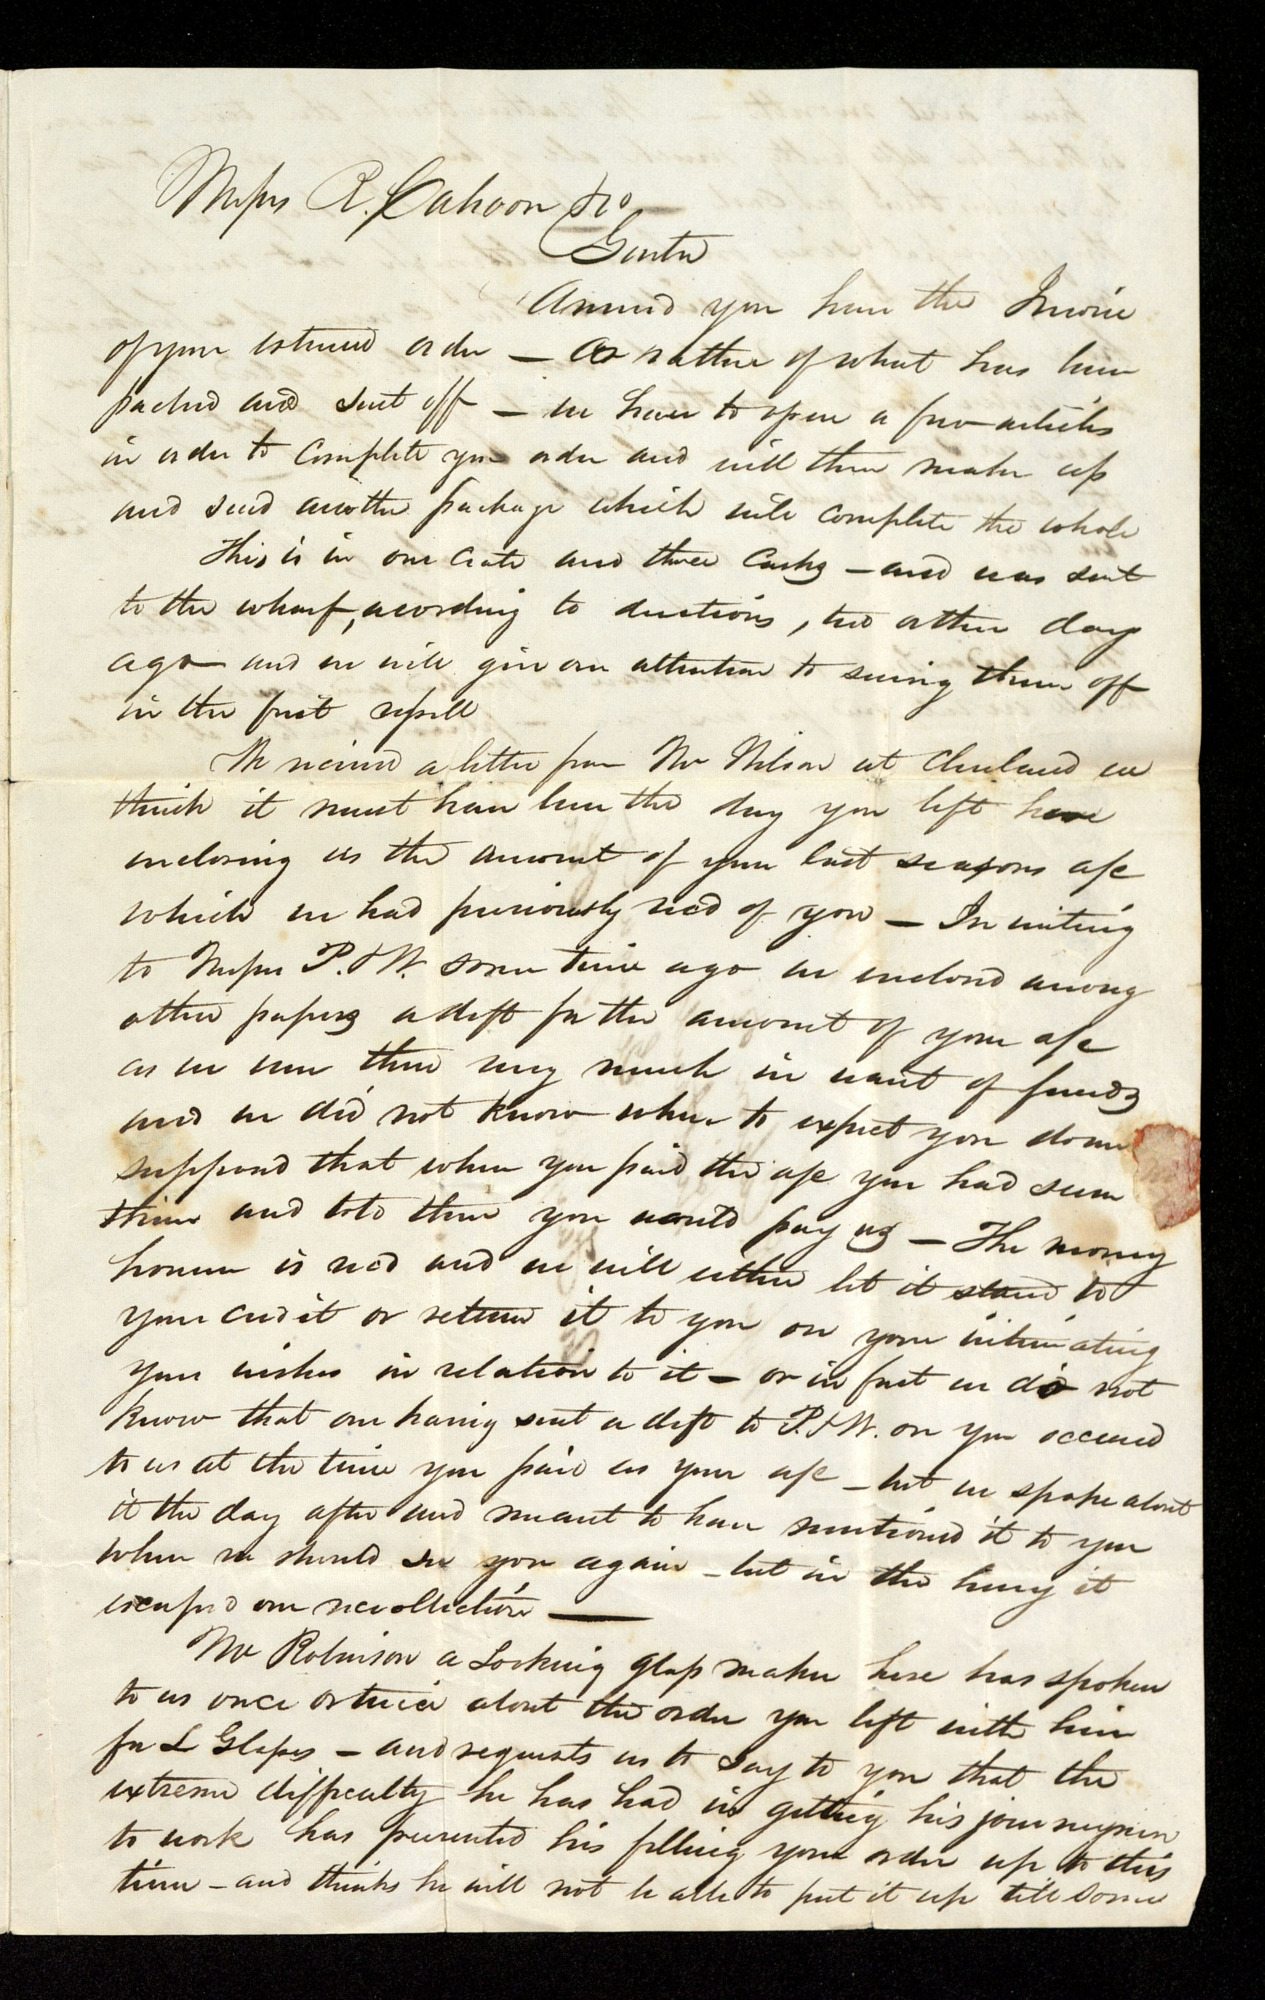 Messrs R. Cahoon & Co
Gents
Annexed you have the Invoice
of your esteemed order – Or rather of what has been
packed and sent off – we have to open a few articles
in order to complete your order and will then make up
and send another package which will complete the whole
This is in one crate and three casks – and was sent
to the wharf, acording to directions, two other days
ago and we will give our attention to seeing them off
in the first vessell
We received a letter from Mr Wilson at Cleveland we
think it must have been the day you left here
enclosing us the amount of your last seasons a/c
which we had previously recd of you – In writing
to Messrs P. & W. some time ago we enclosd among
other papers a dft for the amount of your a/c
as we were then very much in want of funds
and we did not know when to expect you down
supposed that when you paid the a/c you had seen
them and told them you would pay us – The money
however is recd and we will either let it stand to
your credit or return it to you on your intimating
your wishes in relation to it – or in fact we do not
know that our having sent a dft to P. & W. on you occured
to us at the time you paid us your a/c – but we spoke about
it the day after and meant to have mentioned it to you
when we should see you again – but in the hurry it
escaped our recollection –
Mr Robinson a Looking glass maker here has spoken
to us once or twice about the order you left with him
for L Glasses – and requests us to say to you that the
extreme difficulty he has had in getting his journeymen
to work has prevented his filling your order up to this
time – and thinks he will not be able to put it up till some